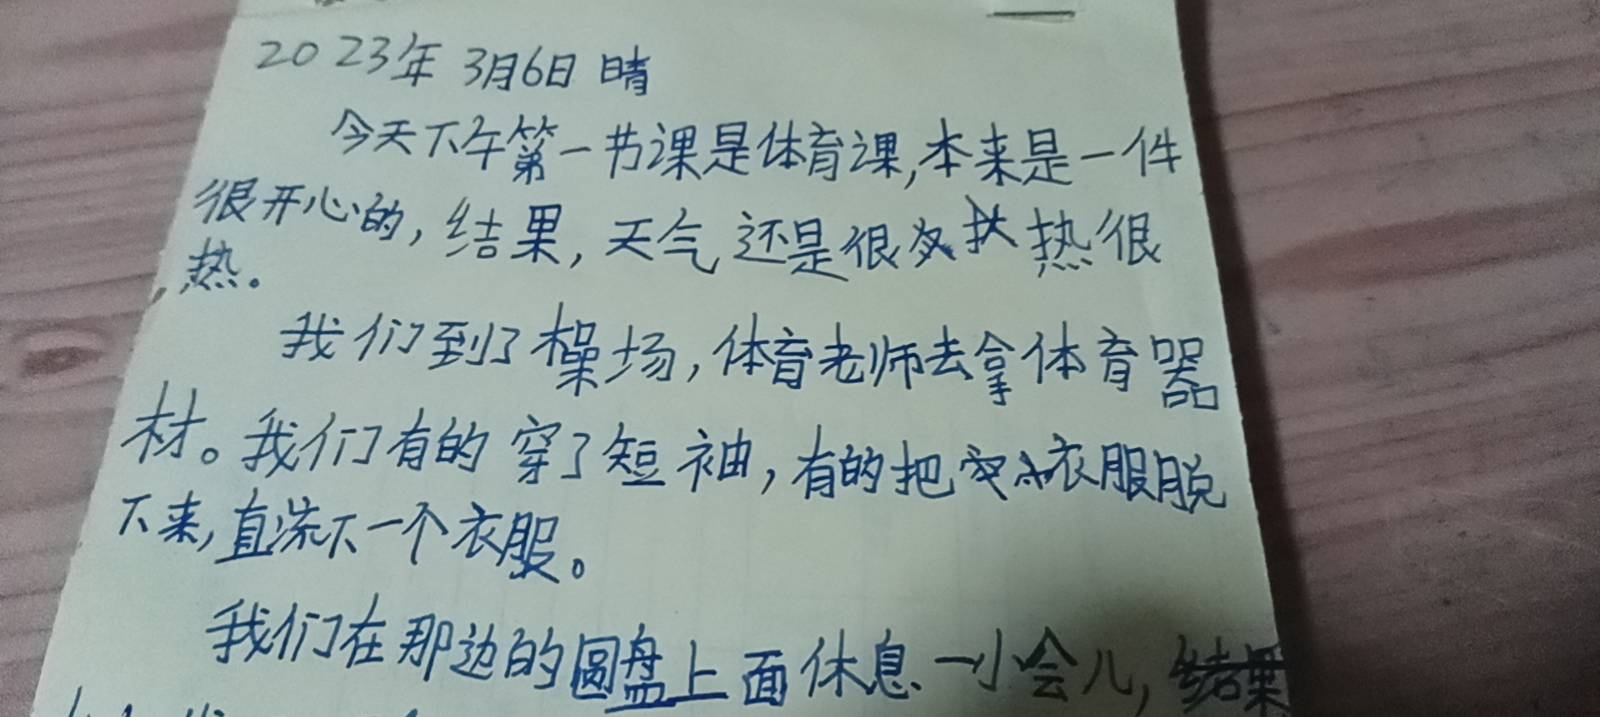 2023年 3月6日 晴
今天下午第一节课是体育课,本来是一件
很开心的,结果,天气还是很热很
热。
我们到了操场,体育老师去拿体育器
材。我们有的穿了短袖,有的把衣服脱
下来,直流下一个衣服。
我们在那边的圆盘上面休息一小会儿,结果